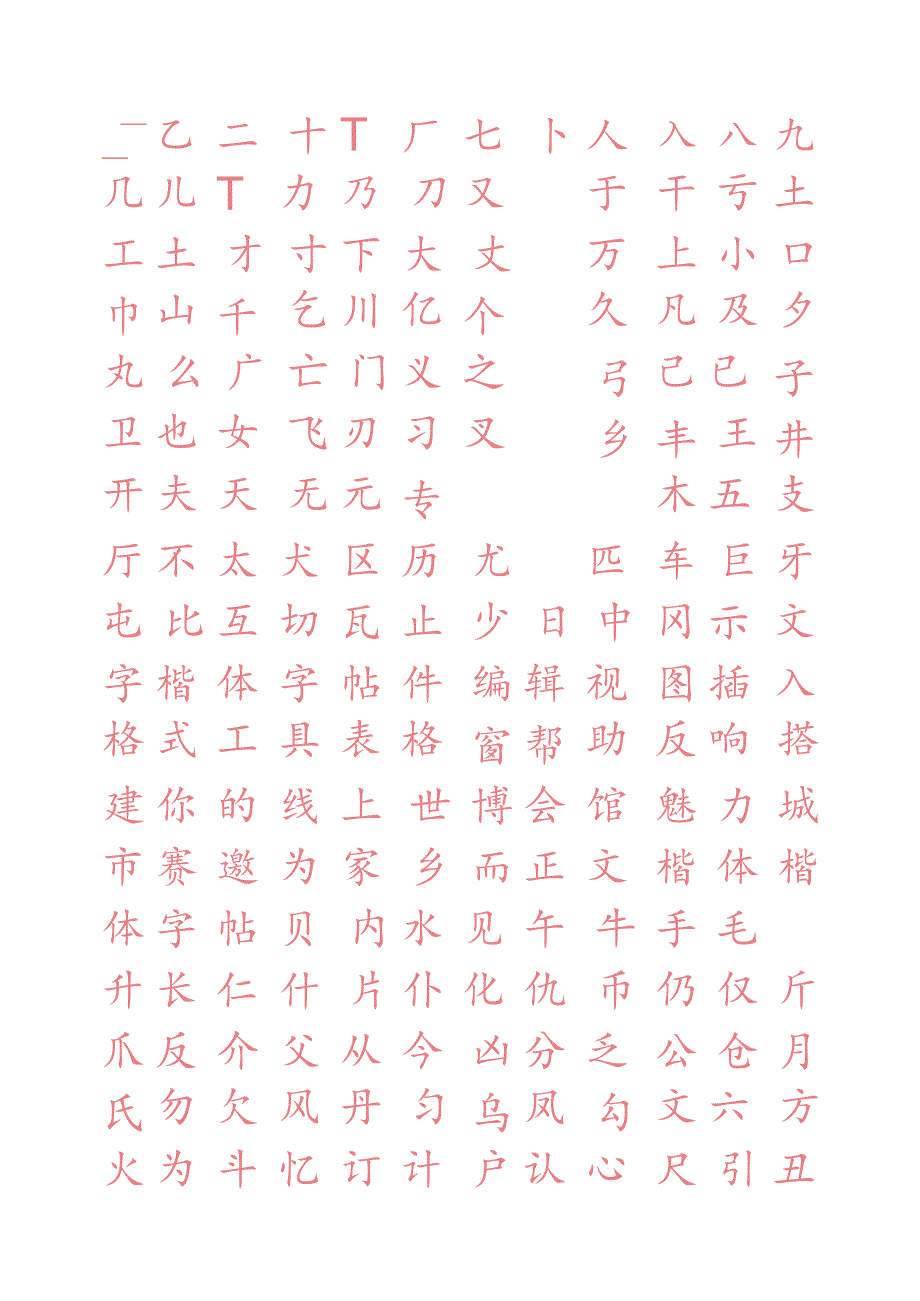 一 乙 二 十 T 厂 七 卜 人 入 八 九
几 儿 T 力 乃 刀 又 于 干 亏 土
工 土 才 寸 下 大 丈 万 上 小 口
巾 山 千 乞 川 亿 个 久 凡 及 夕
丸 么 广 亡 门 义 之 弓 己 已 子
卫 也 女 飞 刃 习 叉 乡 丰 王 井
开 夫 天 无 元 专 木 五 支
厅 不 太 犬 区 历 尤 匹 车 巨 牙
屯 比 互 切 瓦 止 少 日 中 冈 示 文
字 楷 体 字 帖 件 编 辑 视 图 插 入
格 式 工 具 表 格 窗 帮 助 反 响 搭
建 你 的 线 上 世 博 会 馆 魅 力 城
市 赛 邀 为 家 乡 而 正 文 楷 体 楷
体 字 帖 贝 内 水 见 午 牛 手 毛
升 长 仁 什 片 仆 化 仇 币 仍 仅 斤
爪 反 介 父 从 今 凶 分 乏 公 仓 月
氏 勿 欠 风 丹 匀 乌 凤 勾 文 六 方
火 为 斗 忆 订 计 户 认 心 尺 引 丑